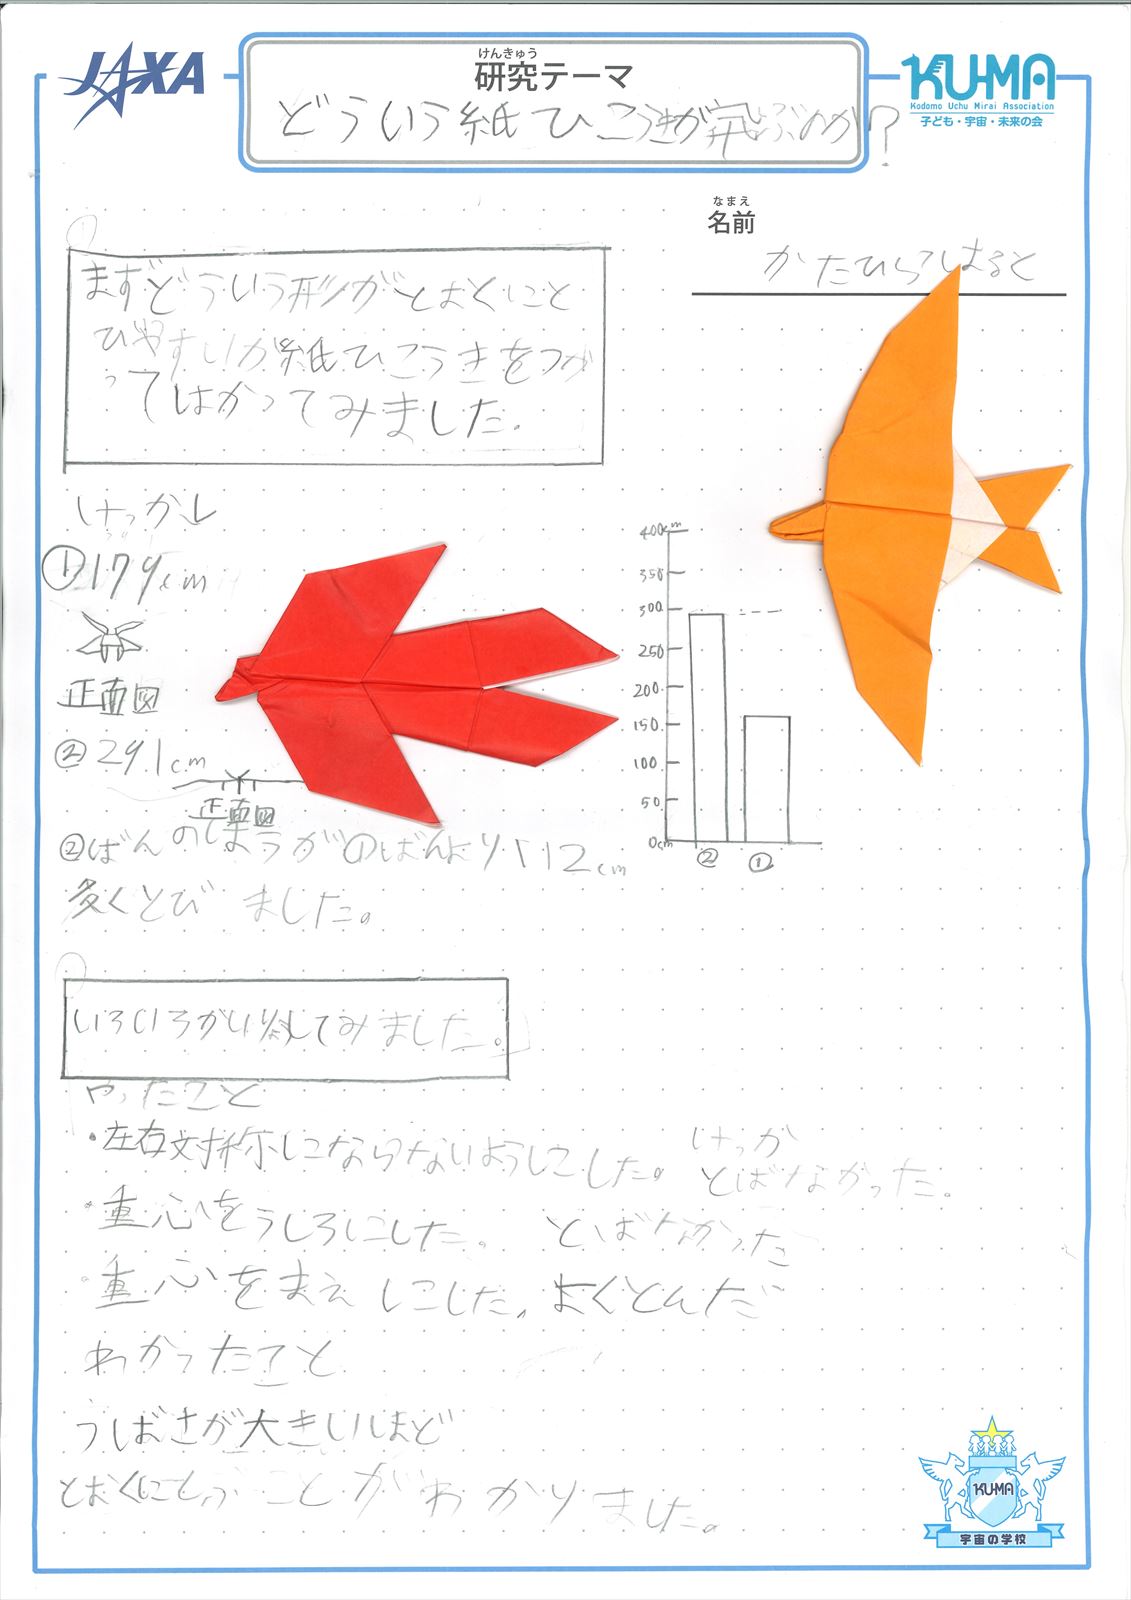 JAXA
けんきゅう
研究テーマ
どういう紙ひこうきが飛ぶのか?
KU-MA
Kodomo Uchu Mirai Association
子ども・宇宙・未来の会
なまえ
名前
まずどういう形がとおくにと
びやすいか紙ひこうきをつか
ってはかってみました。
けっか
①179cm
正面図
②291cm
正面図
②ばんのほうが①ばんより112cm
多くとびました。
400cm
350
300
250
200
150
100
50
0cm
② ①
いろいろかいりょうしてみました。
やったこと
・左右対称にならないようにした。 けっか
とばなかった。
・重心をうしろにした。 とばなかった
・重心をまえにした。よくとんだ
わかったこと
つばさが大きいほど
とおくにとぶことがわかりました。
KU-MA
宇宙の学校